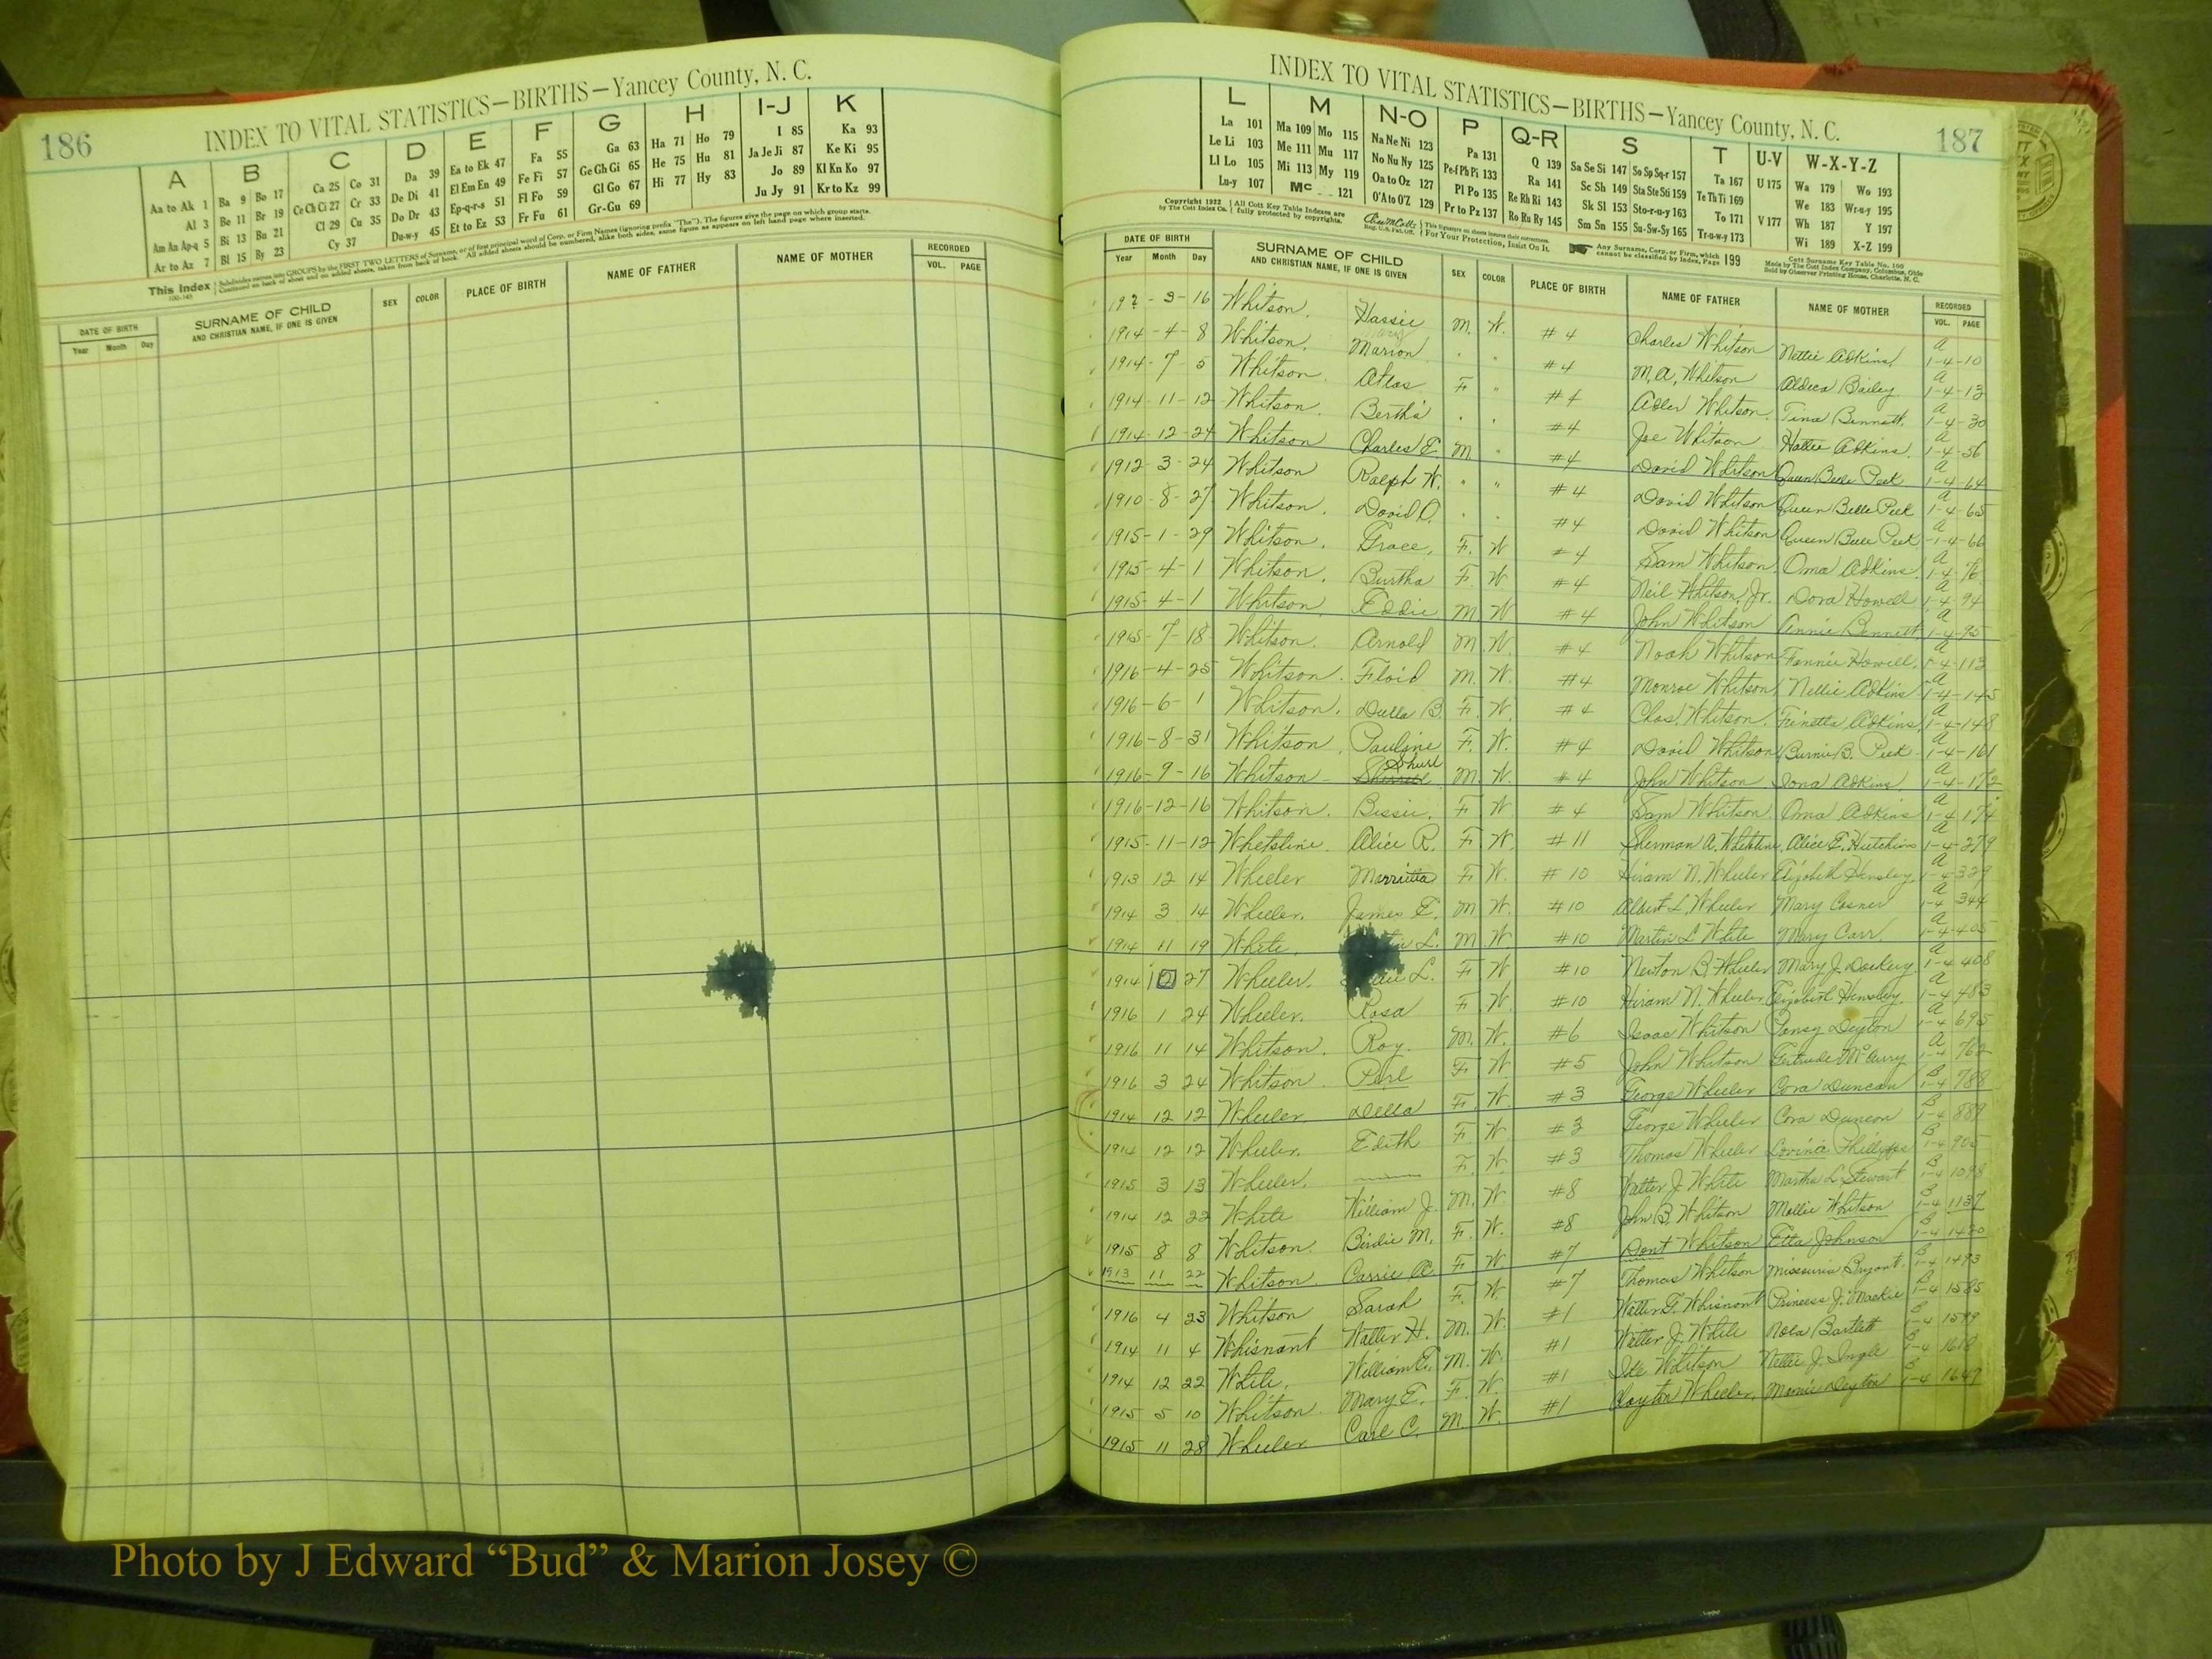 186
INDEX TO VITAL STATISTICS—BIRTHS—Yancey County, N. C.
A B C D E F G H I-J K
Aa to Ak 1 Ba 9 Bo 17 Ca 25 Co 31 Da 39 Ea to Ek 47 Fa 55 Ga 63 Ha 71 Ho 79 I 85 Ka 93
Al 3 Be 11 Br 19 Ce Ch Ci 27 Cr 33 De Di 41 El Em En 49 Fe Fi 57 Ge Gh Gi 65 He 75 Hu 81 Ja Je Ji 87 Ke Ki 95
Am An Ap-q 5 Bi 13 Bu 21 Cl 29 Cu 35 Do Dr 43 Ep-q-r-s 51 Fl Fo 59 Gl Go 67 Hi 77 Hy 83 Jo 89 Kl Kn Ko 97
Ar to Az 7 Bl 15 By 23 Cy 37 Du-w-y 45 Et to Ez 53 Fr Fu 61 Gr-Gu 69 Ju Jy 91 Kr to Kz 99
This Index Subdivides names into GROUPS by the FIRST TWO LETTERS of Surname, or of first principal word of Corp. or Firm Names (ignoring prefix "The"). The figures give the page on which group starts.
DATE OF BIRTH SURNAME OF CHILD SEX COLOR PLACE OF BIRTH NAME OF FATHER NAME OF MOTHER RECORDED
Year Month Day AND CHRISTIAN NAME, IF ONE IS GIVEN VOL. PAGE
INDEX TO VITAL STATISTICS—BIRTHS—Yancey County, N. C.
187
L M N-O P Q-R S T U-V W-X-Y-Z
La 101 Ma 109 Mo 115 Na Ne Ni 123 Pa 131 Q 139 Sa Se Si 147 So Sp Sq-r 157 Ta 167 U 175 Wa 179 Wo 193
Le Li 103 Me 111 Mu 117 No Nu Ny 125 Pe-f Ph Pi 133 Ra 141 Sc Sh 149 Sta Ste Sti 159 Te Th Ti 169 We 183 Wr-u-y 195
Ll Lo 105 Mi 113 My 119 Oa to Oz 127 Pl Po 135 Re Rh Ri 143 Sk Sl 153 Sto-r-u-y 163 To 171 V 177 Wh 187 Y 197
Lu-y 107 Mc 121 O'A to O'Z 129 Pr to Pz 137 Ro Ru Ry 145 Sm Sn 155 Su-Sw-Sy 165 Tr-u-w-y 173 Wi 189 X-Z 199
Copyright 1922 by The Cott Index Co. All Cott Key Table Indexes are fully protected by copyrights. For Your Protection, Insist On It. Any Surname, Corp. or Firm, which cannot be classified by Index, Page 199
Cott Surname Key Table No. 100 Made by The Cott Index Company, Columbus, Ohio Sold by Observer Printing House, Charlotte, N. C.
DATE OF BIRTH SURNAME OF CHILD SEX COLOR PLACE OF BIRTH NAME OF FATHER NAME OF MOTHER RECORDED
Year Month Day AND CHRISTIAN NAME, IF ONE IS GIVEN VOL. PAGE
3-16 Whitson. Hassie M. W. #4 Charles Whitson Nettie Adkins A 1-4-10
1914-4-8 Whitson. Marion " " #4 M.A. Whitson Aldeca Bailey A 1-4-13
1914-7-5 Whitson. Atlas F " #4 Adler Whitson Tina Bennett. A 1-4-30
1914-11-12 Whitson. Bertha " " #4 Joe Whitson Hattie Adkins. A 1-4-56
1914-12-24 Whitson Charles E. M " #4 David Whitson Queen Belle Peek A 1-4-64
1912-3-24 Whitson Ralph W. " " #4 David Whitson Queen Belle Peek A 1-4-65
1910-8-27 Whitson. David O. " " #4 David Whitson Queen Belle Peek A 1-4-66
1915-1-29 Whitson. Grace. F. W #4 Sam Whitson. Oma Adkins. A 1-4-76
1915-4-1 Whitson. Burtha F. W #4 Neil Whitson, Jr. Dora Howell A 1-4-94
1915-4-1 Whitson. Eddie M W #4 John Whitson Annie Bennett A 1-4-95
7-18 Whitson. Arnold M. W. #4 Noah Whitson Fannie Howell. A 1-4-113
1916-4-25 Whitson. Floid M. W. #4 Monroe Whitson Nellie Adkins A 1-4-145
1916-6-1 Whitson. Della B. F. W. #4 Chas. Whitson. Adkins A 1-4-148
1916-8-31 Whitson Pauline F. W. #4 David Whitson B. Peek A 1-4-161
1916-9-16 Whitson Shurl M. W. #4 John Whitson Adkins A 1-4-172
1916-12-16 Whitson. Bessie. F. W #4 Sam Whitson. Oma Adkins A 1-4 174
1915-11-12 Whetstine. Alice R. F. W. #11 Sherman A. Whetstine Alice E. Hutchins A 1-4-279
1913 12 14 Wheeler Marrietta F. W. #10 Hiram N. Wheeler Elizabeth Hensley A 1-4-329
1914 3 14 Wheeler. James E. M W. #10 Albert L. Wheeler Mary Cosner A 1-4 344
1914 11 19 White. L. M W #10 Martin L White Mary Carr. A 1-4-405
1914 27 Wheeler. L. F. W #10 Newton B. Wheeler Mary J. Dockery A 1-4 408
1916 1 24 Wheeler. Rosa F. W. #10 Hiram N. Wheeler Elizabeth Hensley. A 1-4 483
1916 11 14 Whitson. Roy. M. W. #6 Isaac Whitson Pansy Deyton A 1-4 695
1916 3 24 Whitson. Perl F. W. #5 John Whitson Gertrude McCurry A 1-4 762
1914 12 12 Wheeler Della F. W. #3 George Wheeler Cora Duncan B 1-4 788
1914 12 12 Wheeler. Edith F. W #3 George Wheeler Cora Duncan B 1-4 889
1915 3 13 Wheeler. F. W. #3 Thomas Wheeler B 1-4 905
1914 12 22 White William J. M. W #8 Walter J. White Martha L Stewart B 1-4 1098
1915 8 8 Whitson. Birdie M. F. W. #8 John B. Whitson Mollie Whitson B 1-4 1137
1913 11 22 Whitson Carrie F. W. #7 Dont Whitson Etta Johnson B 1-4 1420
1916 4 23 Whitson Sarah F. W #7 Thomas Whitson Missouria Bryant B 1-4 1493
1914 11 4 Whisnant Walter H. M. W. #1 Walter F. Whisnant Princess J. Mackie B 1-4 1585
1914 12 22 White. William M. W. #1 Walter J. White Nola Bartlett B 1-4 1599
1915 5 10 Whitson Mary E. F. W. #1 Whitson Nellie J. Ingle B 1-4 1618
1915 11 28 Wheeler Carl C. M. W. #1 Clayton Wheeler. Mamie Deyton B 1-4 1647
Photo by J Edward “Bud” & Marion Josey ©